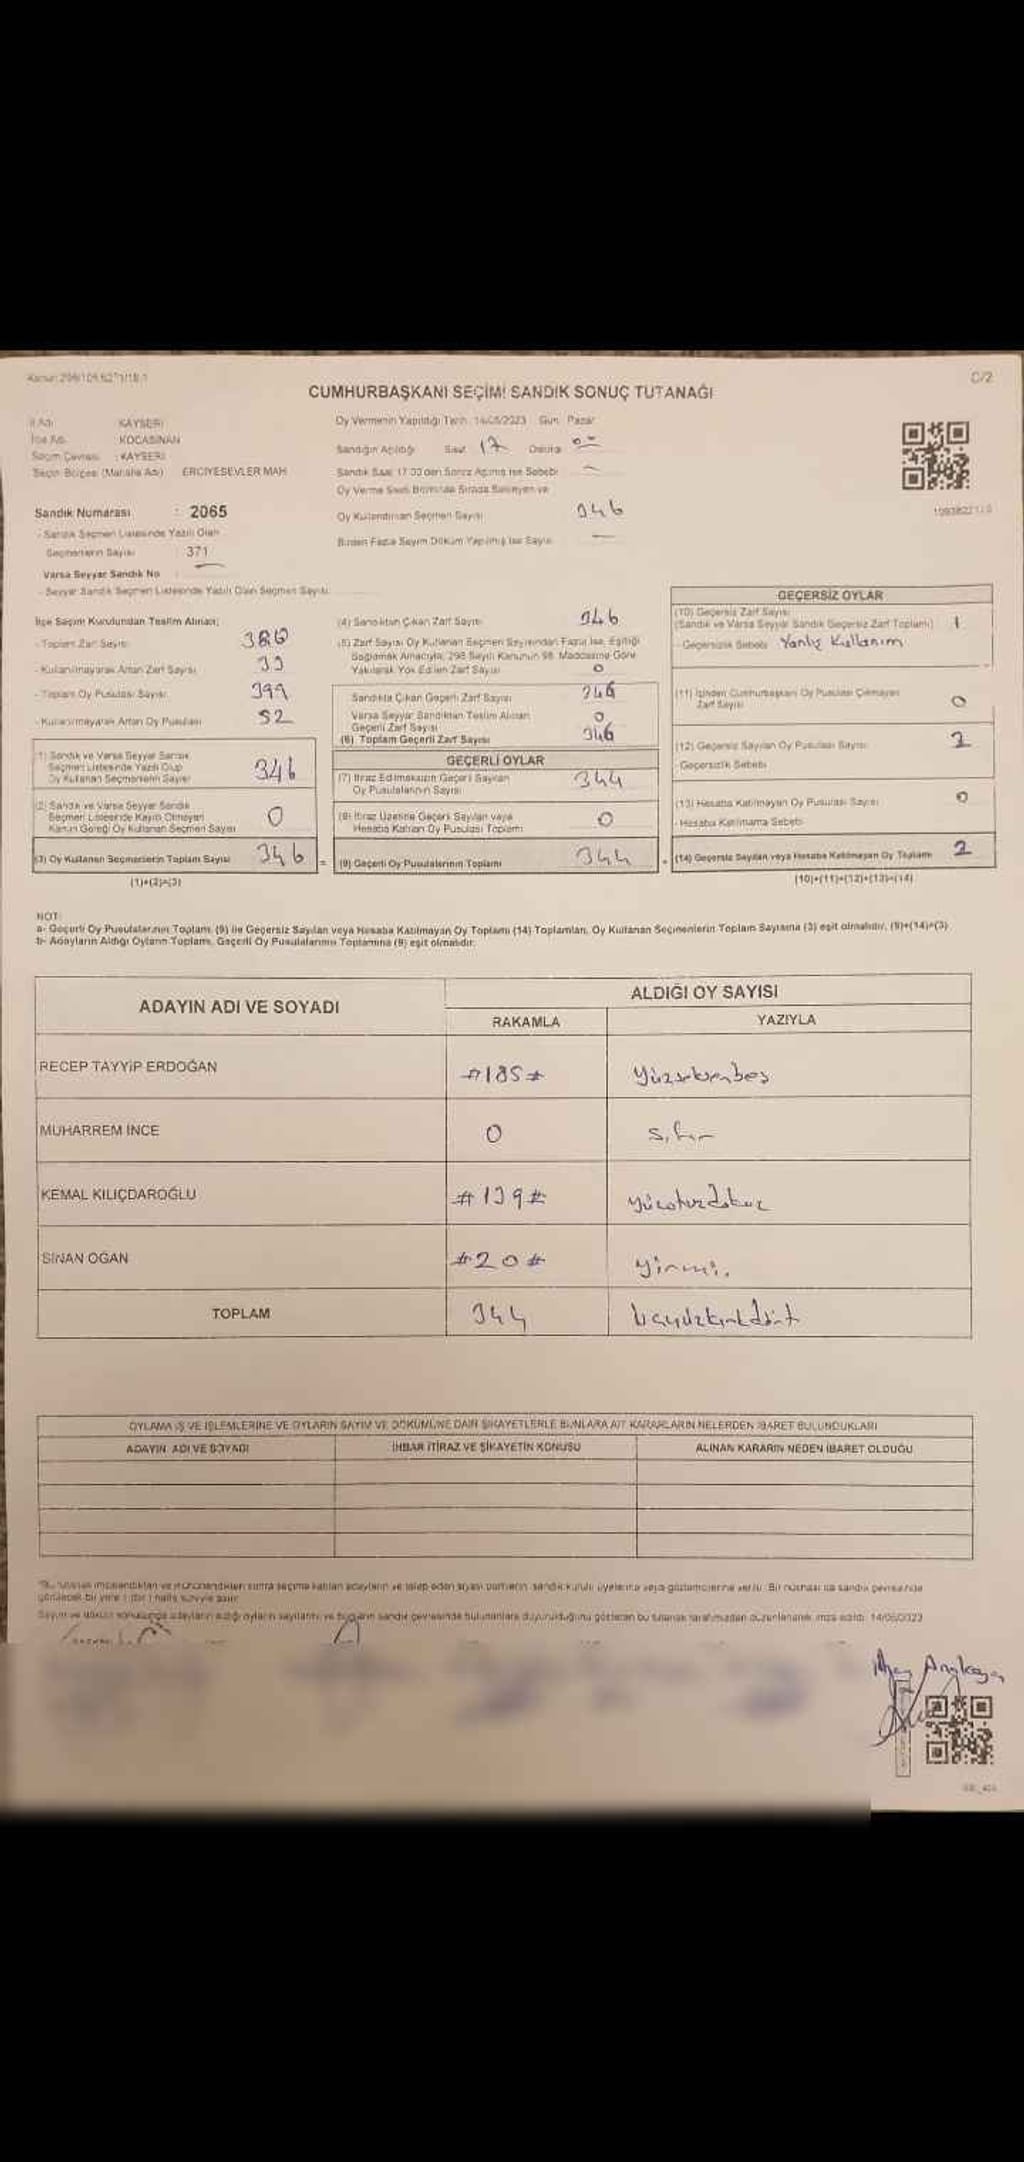 C/2
CUMHURBAŞKANI SEÇİMİ SANDIK SONUÇ TUTANAĞI
İl Adı : KAYSERİ
İlçe Adı : KOCASİNAN
Seçim Çevresi : KAYSERİ
Seçim Bölgesi (Mahalle Adı) ERCİYESEVLER MAH.
Sandık Numarası : 2065
- Sandık Seçmen Listesinde Yazılı Olan
Seçmenlerin Sayısı : 371
Varsa Seyyar Sandık No :
- Seyyar Sandık Seçmen Listesinde Yazılı Olan Seçmen Sayısı
Oy Vermenin Yapıldığı Tarih : 14/05/2023 Gün : Pazar
Sandığın Açıldığı Saat 17 Dakika 00
Sandık Saat 17.00'den Sonra Açılmış İse Sebebi -
Oy Verme Saati Bitiminde Sırada Bekleyen ve
Oy Kullandırılan Seçmen Sayısı 346
Birden Fazla Sayım Döküm Yapılmış İse Sayısı —
İlçe Seçim Kurulundan Teslim Alınan;
- Toplam Zarf Sayısı 380
- Kullanılmayarak Artan Zarf Sayısı 33
- Toplam Oy Pusulası Sayısı 399
- Kullanılmayarak Artan Oy Pusulası 52
(1) Sandık ve Varsa Seyyar Sandık
Seçmen Listesinde Yazılı Olup
Oy Kullanan Seçmenlerin Sayısı 346
(2) Sandık ve Varsa Seyyar Sandık
Seçmen Listesinde Kayıtlı Olmayan
Kanun Gereği Oy Kullanan Seçmen Sayısı 0
(3) Oy Kullanan Seçmenlerin Toplam Sayısı 346 =
(1)+(2)=(3)
(4) Sandıktan Çıkan Zarf Sayısı 346
(5) Zarf Sayısı Oy Kullanan Seçmen Sayısından Fazla İse, Eşitliği
Sağlamak Amacıyla, 298 Sayılı Kanunun 98. Maddesine Göre
Yakılarak Yok Edilen Zarf Sayısı 0
Sandıkta Çıkan Geçerli Zarf Sayısı 346
Varsa Seyyar Sandıktan Teslim Alınan
Geçerli Zarf Sayısı 0
(6) Toplam Geçerli Zarf Sayısı 346
GEÇERLİ OYLAR
(7) İtiraz Edilmeksizin Geçerli Sayılan
Oy Pusulalarının Sayısı 344
(8) İtiraz Üzerine Geçerli Sayılan veya
Hesaba Katılan Oy Pusulası Toplamı 0
(9) Geçerli Oy Pusulalarının Toplamı 344 +
GEÇERSİZ OYLAR
(10) Geçersiz Zarf Sayısı
(Sandık ve Varsa Seyyar Sandık Geçersiz Zarf Toplamı) 1
- Geçersizlik Sebebi Yanlış Kullanım
(11) İçinden Cumhurbaşkanı Oy Pusulası Çıkmayan
Zarf Sayısı 0
(12) Geçersiz Sayılan Oy Pusulası Sayısı 2
- Geçersizlik Sebebi
(13) Hesaba Katılmayan Oy Pusulası Sayısı 0
- Hesaba Katılmama Sebebi
(14) Geçersiz Sayılan veya Hesaba Katılmayan Oy Toplamı 2
(10)+(11)+(12)+(13)=(14)
NOT:
a- Geçerli Oy Pusulalarının Toplamı (9) ile Geçersiz Sayılan veya Hesaba Katılmayan Oy Toplamı (14) Toplamları, Oy Kullanan Seçmenlerin Toplam Sayısına (3) eşit olmalıdır. (9)+(14)=(3)
b- Adayların Aldığı Oyların Toplamı, Geçerli Oy Pusulalarının Toplamına (9) eşit olmalıdır.
ADAYIN ADI VE SOYADI
ALDIĞI OY SAYISI
RAKAMLA YAZIYLA
RECEP TAYYİP ERDOĞAN #185# yüzseksenbeş
MUHARREM İNCE 0 sıfır
KEMAL KILIÇDAROĞLU #139# yüzotuzdokuz
SİNAN OĞAN #20# yirmi.
TOPLAM 344 üçyüzkırkdört
OYLAMA İŞ VE İŞLEMLERİNE VE OYLARIN SAYIM VE DÖKÜMÜNE DAİR ŞİKAYETLERLE BUNLARA AİT KARARLARIN NELERDEN İBARET BULUNDUKLARI
ADAYIN ADI VE SOYADI İHBAR İTİRAZ VE ŞİKAYETİN KONUSU ALINAN KARARIN NEDEN İBARET OLDUĞU
Bu tutanak imzalandıktan ve mühürlendikten sonra seçime katılan adayların ve talep eden siyasi partilerin sandık kurulu üyelerine veya gözlemcilerine verilir. Bir nüshası da sandık çevresinde
görülecek bir yere 1 (bir) hafta süreyle asılır.
Sayım ve döküm sonucunda adayların aldığı oyların sayılarını ve bunların sandık çevresinde bulunanlara duyurulduğunu gösteren bu tutanak tarafımızdan düzenlenerek imza edildi. 14/05/2023